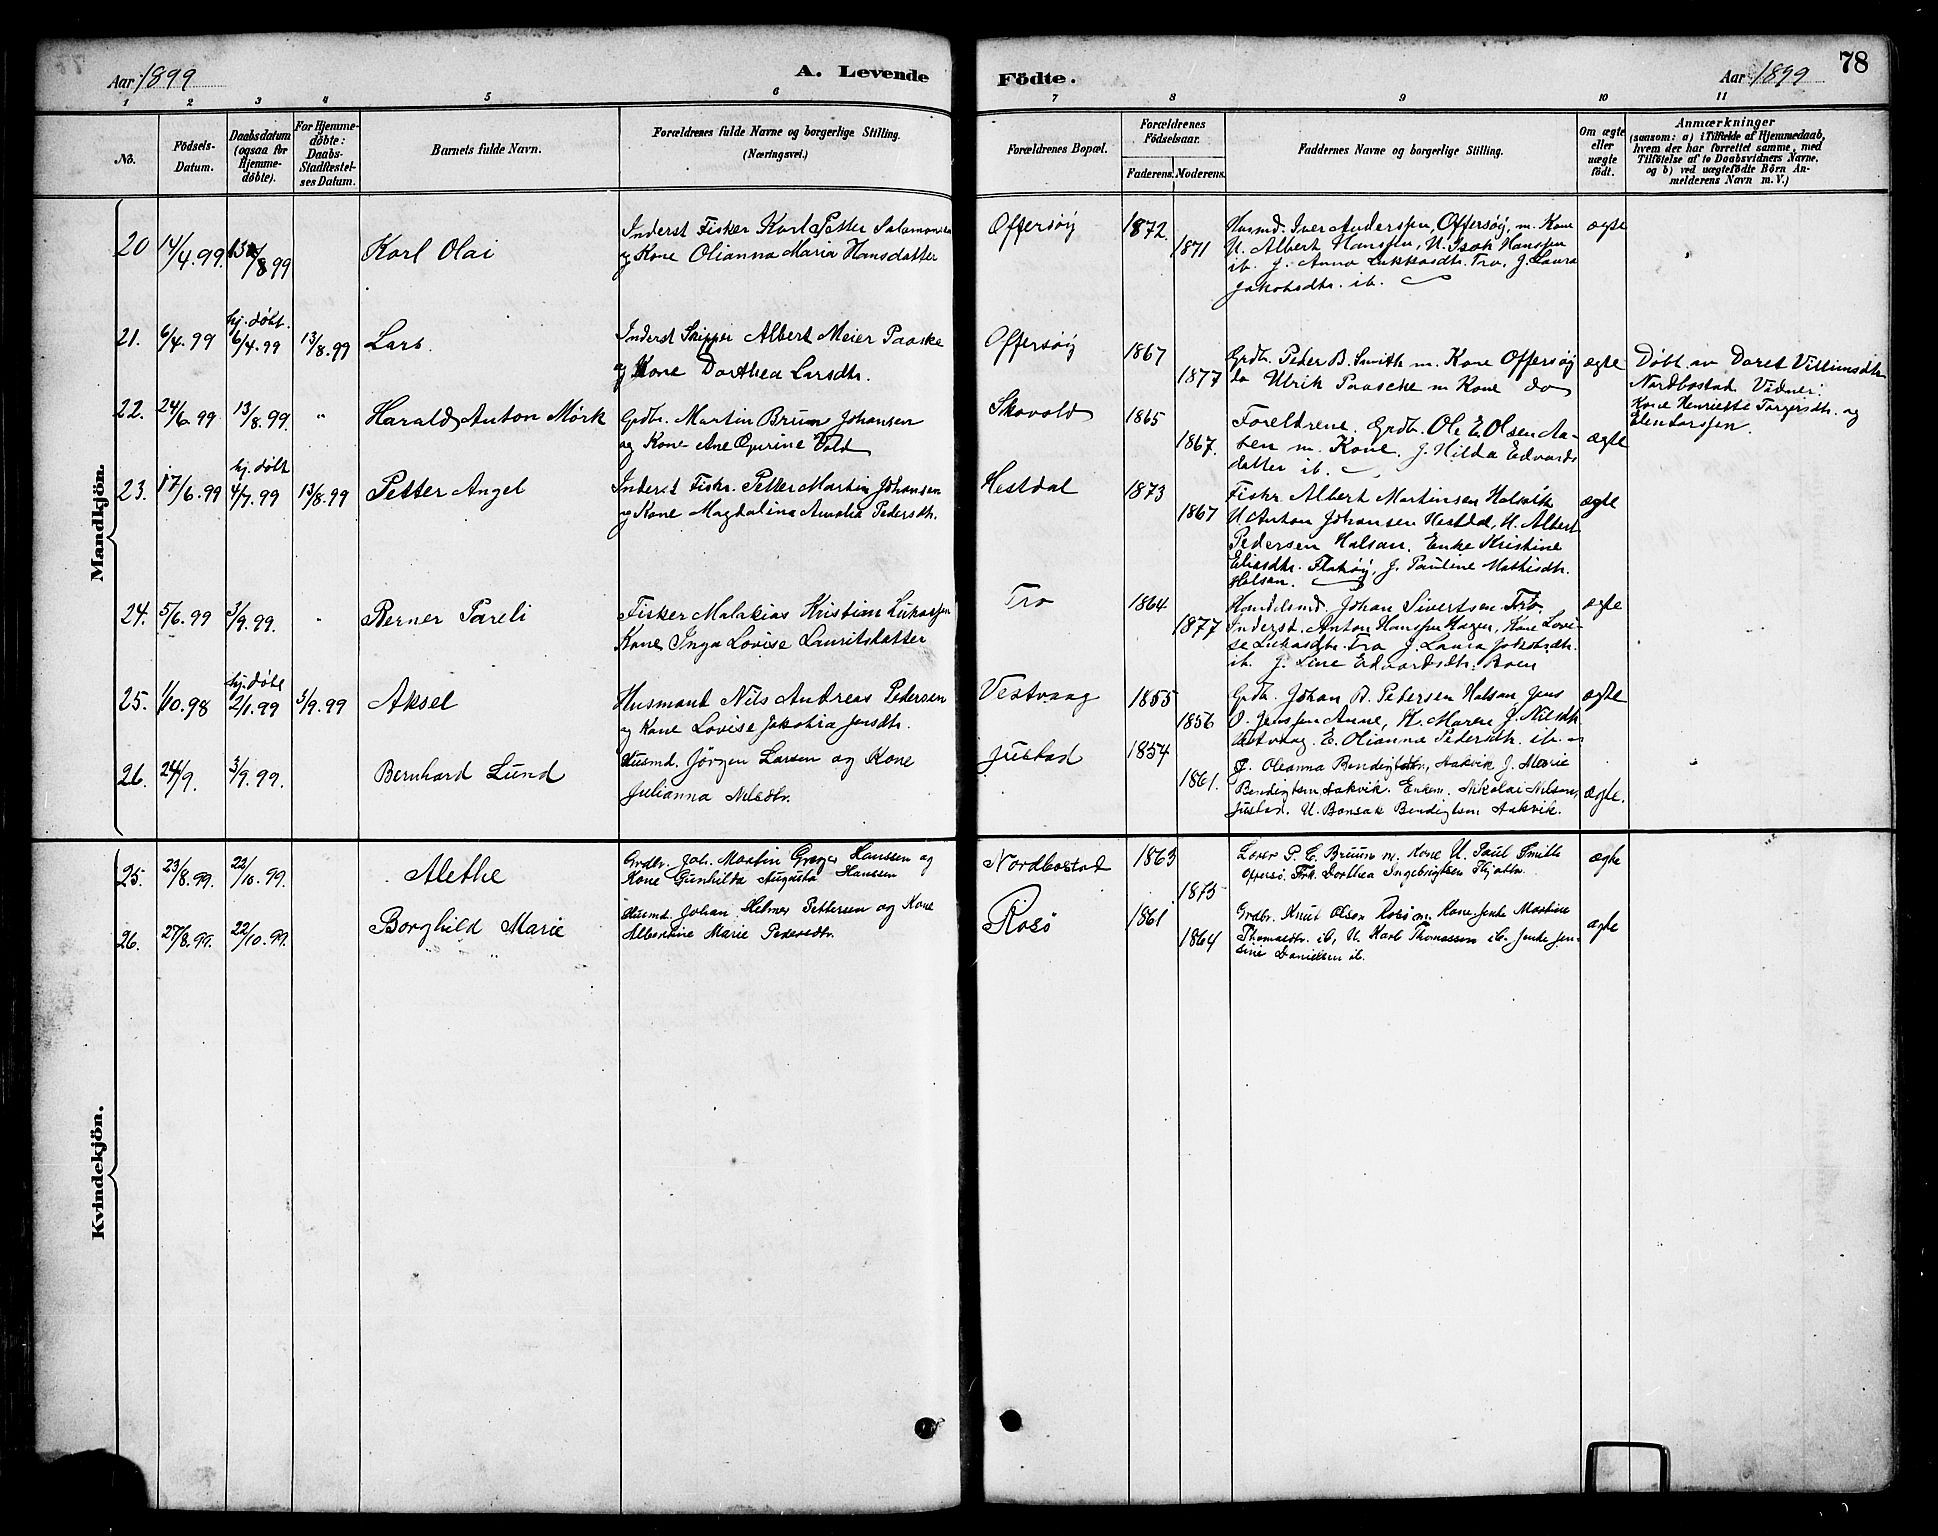 Aar 1899
A. Levende
Födte.
Aar 1899
78
1 2 3 4 5 6 7 8 9 10 11
No.
Födsels-
Datum.
Daabsdatum
(ogsaa for
Hjemme-
döbte).
For Hjemme-
döbte:
Daabs-
Stadfæstel-
ses Datum.
Barnets fulde Navn.
Forældrenes fulde Navne og borgerlige Stilling.
(Næringsvei.)
Forældrenes Bopæl.
Forældrenes
Födselsaar.
Faderens. Moderens.
Faddernes Navne og borgerlige Stilling.
Om ægte
eller
uægte
födt.
Anmærkninger
(saasom: a) i Tilfælde af Hjemmedaab,
hvem der har forrettet samme, med
Tilföielse af to Daabsvidners Navne,
og b) ved uægtefödte Börn An-
melderens Navn m. V.)
Mandkjön.
20 14/4.99. 13/8 99
Karl Olai
Inderst Fisker Karl Petter
og Kone Olianna Maria Hansdatter
Offersøy
1872
1871
Husmd. Iver Anderssen, Offersøy, m. Kone
U. Albert Hanssen, U. Isak Hanssen
ib. J. Anna Lukkasdtr. Tro, J. Laura
Jakobsdtr. ib.
ægte
21. 6/4.99 hj. døbt. 6/4.99 13/8.99
Lars.
Inderst Skipper Albert Meier Paaske
og Kone Dorthea Larsdtr.
Offersøy
1867
1877
Grdb. Peder B. Smith m. Kone Offersøy
do Ulrik Paasche m Kone do
ægte
Døbt av Doret Villumsdtr
Nordbostad. Vidner:
Kone Henriette Torgersdtr. og
Elen Larssen.
22. 24/6.99 13/8.99. "
Harald Anton Mørk
Grdbr. Martin Bruun Johansen
og Kone Ane Vold
Skovold
1865
1867.
Foreldrene. Grdb. Ole E. Olsen Aa-
sen m. Kone. J. Hilda Edvards
datter ib.
ægte
23. 17/6.99 hj. døbt 4/7.99 13/8.99
Petter Angel
Inderst Fiskr. Petter Martin Johansen
og Kone Magdalina Amalia Pedersdtr.
Hestdal
1873
1867
Fiskr Albert Martinsen
U Anton Johansen Hestdal, U. Albert
Pedersen Halsan, Enke Kristine
Eliasdtr. Flakøy, J. Pauline Mathisdtr.
Halsan.
ægte
24. 5/6.99 3/9.99. "
Rerner Pareli
Fisker Malakias Kristian Lukassen
Kone Inga Lovise Lauritsdatter
Tro
1864
1877
Handelsmd. Johan Sivertsen Tro.
Inderst. Anton Hanssen Hagen, Kone Lovi-
se Lukasdtr. Tro J. Laura Jakobsdtr.
ib. J. Line Edvardsdtr. Boen
ægte
25. 1/10.98 hj. døbt 2/1.99 3/9.99
Aksel
Husmand Nils Andreas Pedersen
og Kone Lovise Jakobia Jensdtr.
Vestvaag
1855
1856
Grdb. Johan B. Pedersen Halsan, Jens
O. Jenssen Anne, K. Maren J. Nilsdtr
Vestvaag. E. Olianna Pedersdtr. ib.
ægte
26. 24/9. 3/9.99.
Bernhard Lund
Husmd. Jörgen Larsen og Kone
Julianna Nilsdtr.
Justad
1854
1861.
J. Oleanna Aakvik J. Marie
Bendigtsen Aakvik. Enkem. Nikolai Nilsen,
Justad. U. Bonsak Bendigtsen Aakvik.
ægte.
Kvindekjön.
25. 23/8.99. 22/10.99.
Alethe
Grdbr. Joh. Martin Hanssen og
Kone Gunhilda Augusta Hanssen
Nordbostad
1863
1875
P. C. Bruun m. Kone U. Paul Smith
Offersø. Frk. Dorthea Ingebrigtsen
ægte
26. 27/8.99. 22/10.99.
Borghild Marie
Husmd. Johan Helmer Pettersen og Kone
Albertine Marie Pedersdtr.
Rosø
1861
1864
Grdbr. Knut Olsen Rosø m. Kone Jente Martine
Thomasdtr. ib, U. Karl Thomassen ib. Jente Jen-
sine Danielsen ib.
ægte